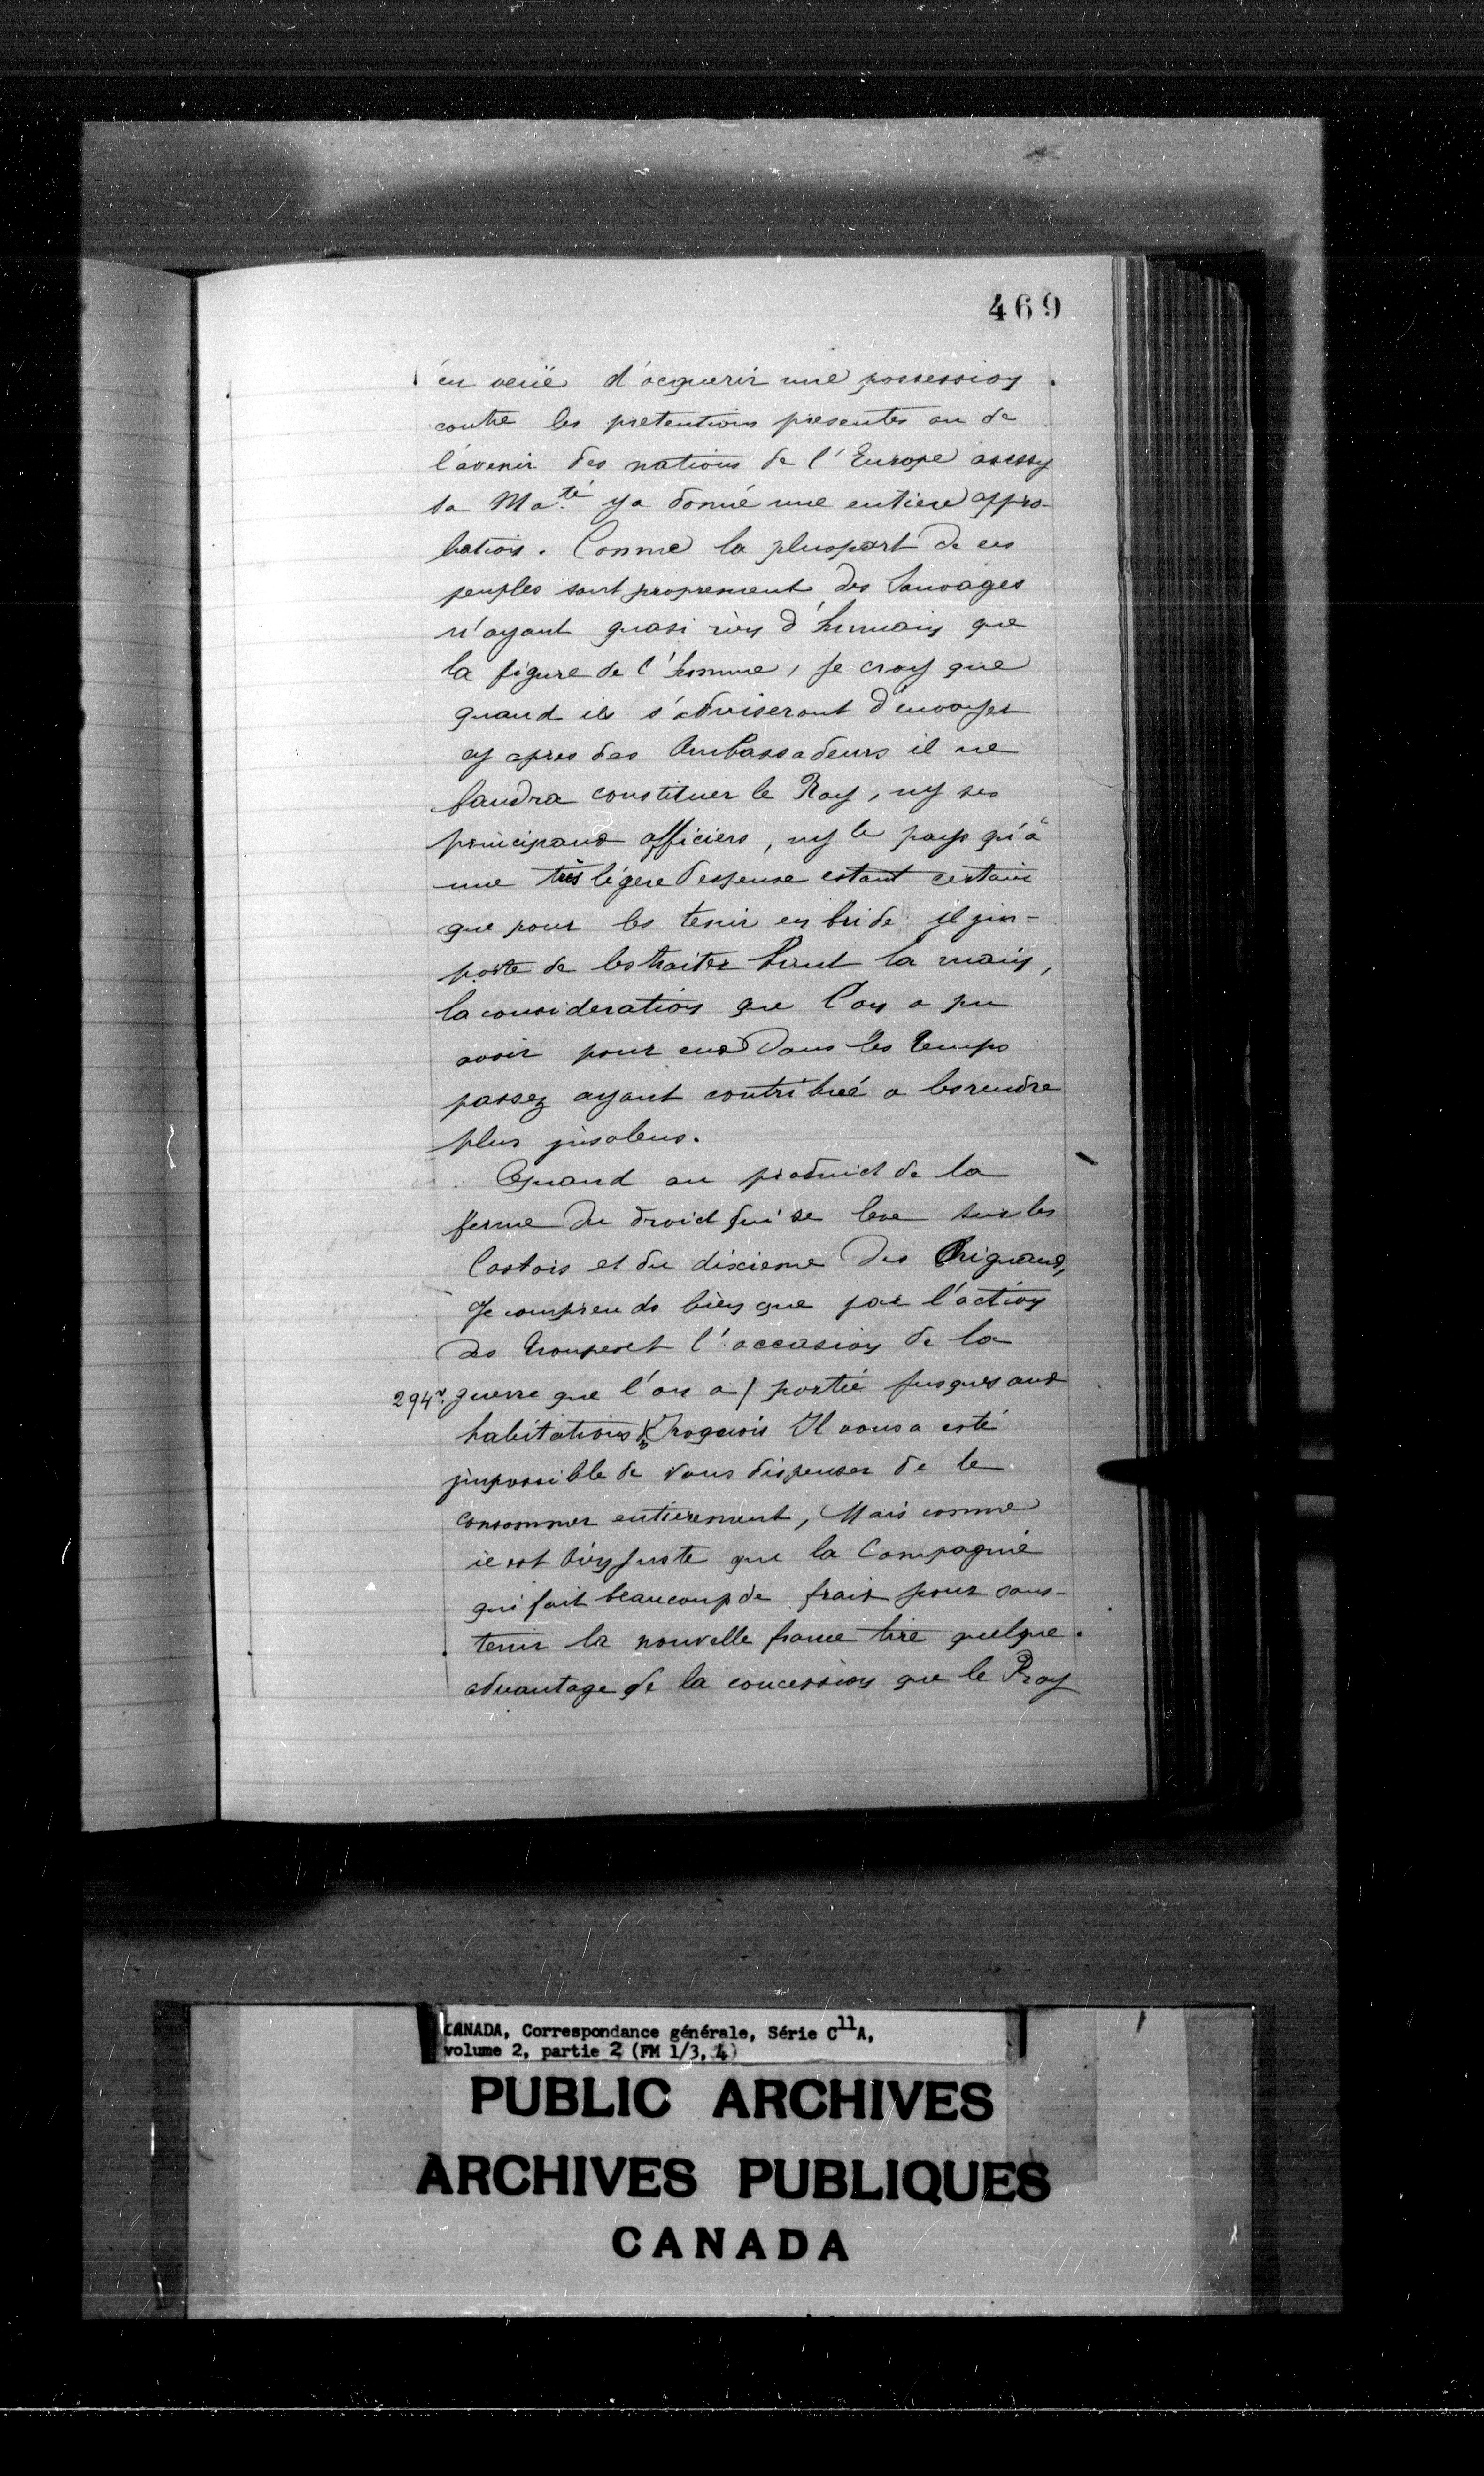 469
en veüe d'acquerir une possession
contre les pretentions presentes ou de
l'avenir des nations de l'Europe
sa Ma.té y a donné une entiere appro-
bation. Comme la pluspart de ces
peuples sont proprement des Sauvages
n'ayant quasi rien d'humain que
la figure de l'homme, Je croy que
quand ils s'adviseront d'envoyer
cy apres des Ambassadeurs il ne
faudra constituer le Roy, ny ses
principaux officiers, ny le pays qu'à
une très légere despense estant certain
que pour les tenir en bride il jm-
porte de les traiter haut la main,
la consideration que l'on a pu
avoir pour eux dans les temps
passez ayant contribué a les rendre
plus jnsolens.
Quand au produict de la
ferme du droict qui se leve sur les
Castors et du dixiesme des Orignaux,
Je comprends bien que par l'action
des troupes et l'occasion de la
294v. guerre que l'on a / portée jusques aux
habitations Iroquois Il vous a esté
jmpossible de vous dispenser de le
consommer entierement, Mais comme
il est bien juste que la Compagnie
qui fait beaucoup de frais pour sous-
tenir la nouvelle france tire quelque
advantage de la concession que le Roy
CANADA, Correspondance générale, Série C11A,
volume 2, partie 2 (FM 1/3, 4)
PUBLIC ARCHIVES
ARCHIVES PUBLIQUES
CANADA